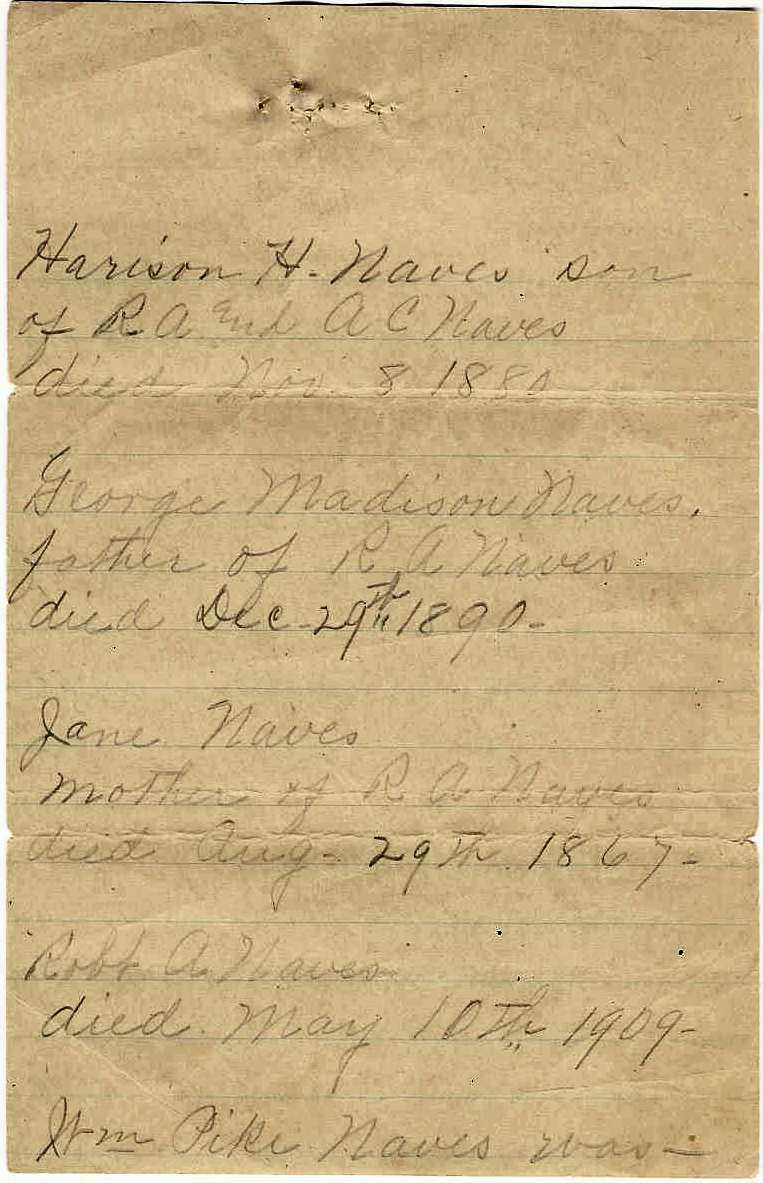 Harison H. Naves son
of R A End A C Naves
died Nov. 8 1880
George Madison Naves.
father of R A Naves
died Dec - 29th 1890 -
Jane Naves
mother of R A Naves
died Aug - 29th 1867 -
Robt A Naves
died May 10th 1909 -
Wm Pike Naves was -